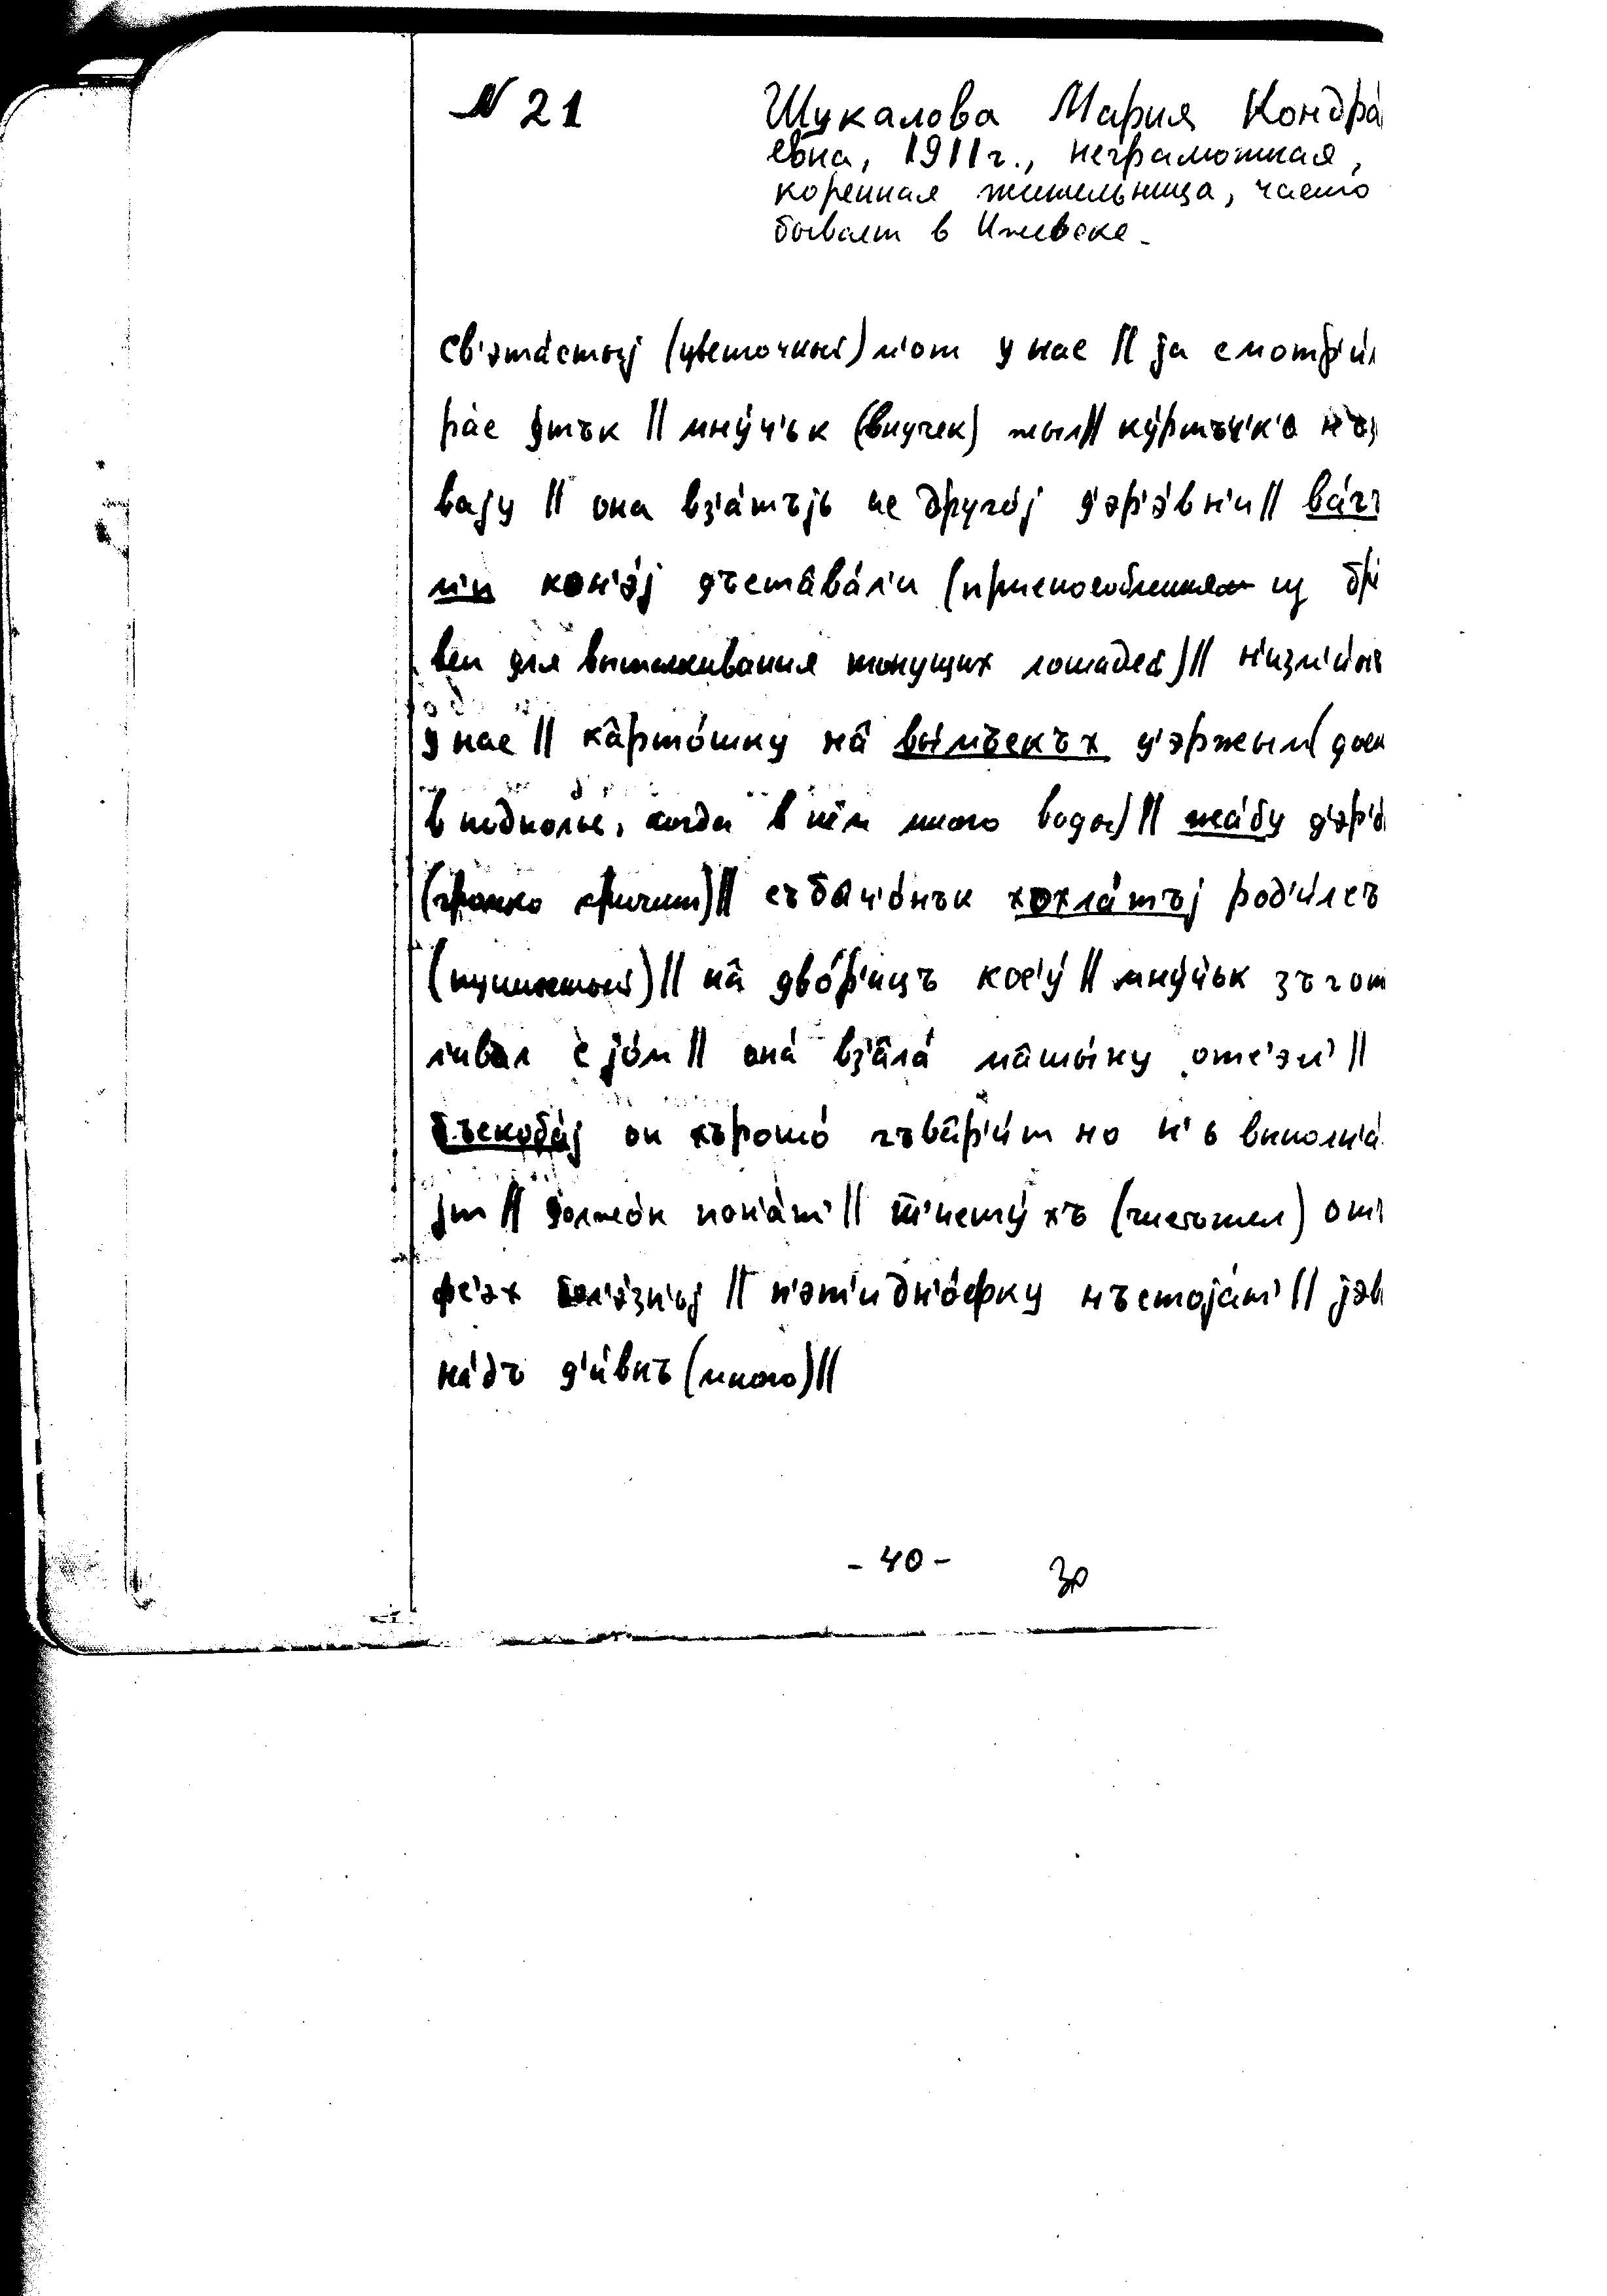 № 21 Шукалова Мария Кондра
евна, 1911 г., неграмотная,
коренная жительница, часто
бывает в Ижевске.
св'эта́стыj (цветочный) м'от у нас || ja смотр'и́л
ра́с у́тък || мну́ч'ьк (внучек) жыл || ку́ртъч'к'а
вајy || она вз'а́тъjь ис друго́j д'эр'э́вн'и || ва́гъ
м'и кон'э́j дъстâва́л'и (приспособлениям из бре
вен для выталкивания тонущих лошадей) ||
у нас || кâрто́шку нâ вы́мъскъх д'эржым (доск
в подполье, когда в нём много воды) || жа́бу д'эр'о
(громко кричит) || събач'о́нък хохла́тъj род'и́лсъ
(пушистый) || нâ дво́р'ицъ кос'у́ || мну́ч'ьк зъгот
л'ивал с jо́м || она́ вз'âла́ мâшы́ну отс'эл' ||
бъскоба́j он хърошо́ гъвâр'и́т но н'ь выполн'а́
jт || должо́н пон'а́т' || т'истýхъ (чистотел) от
фс'эх бол'э́зн'ьj || п'эт'идн'о́фку нъстоjа́т' ||
на́дъ д'и́внъ (много) ||
- 40 -